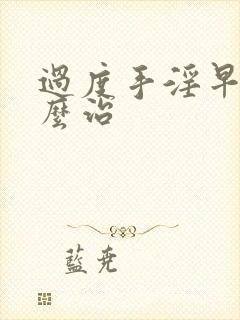 過度手淫早
麼治
藍